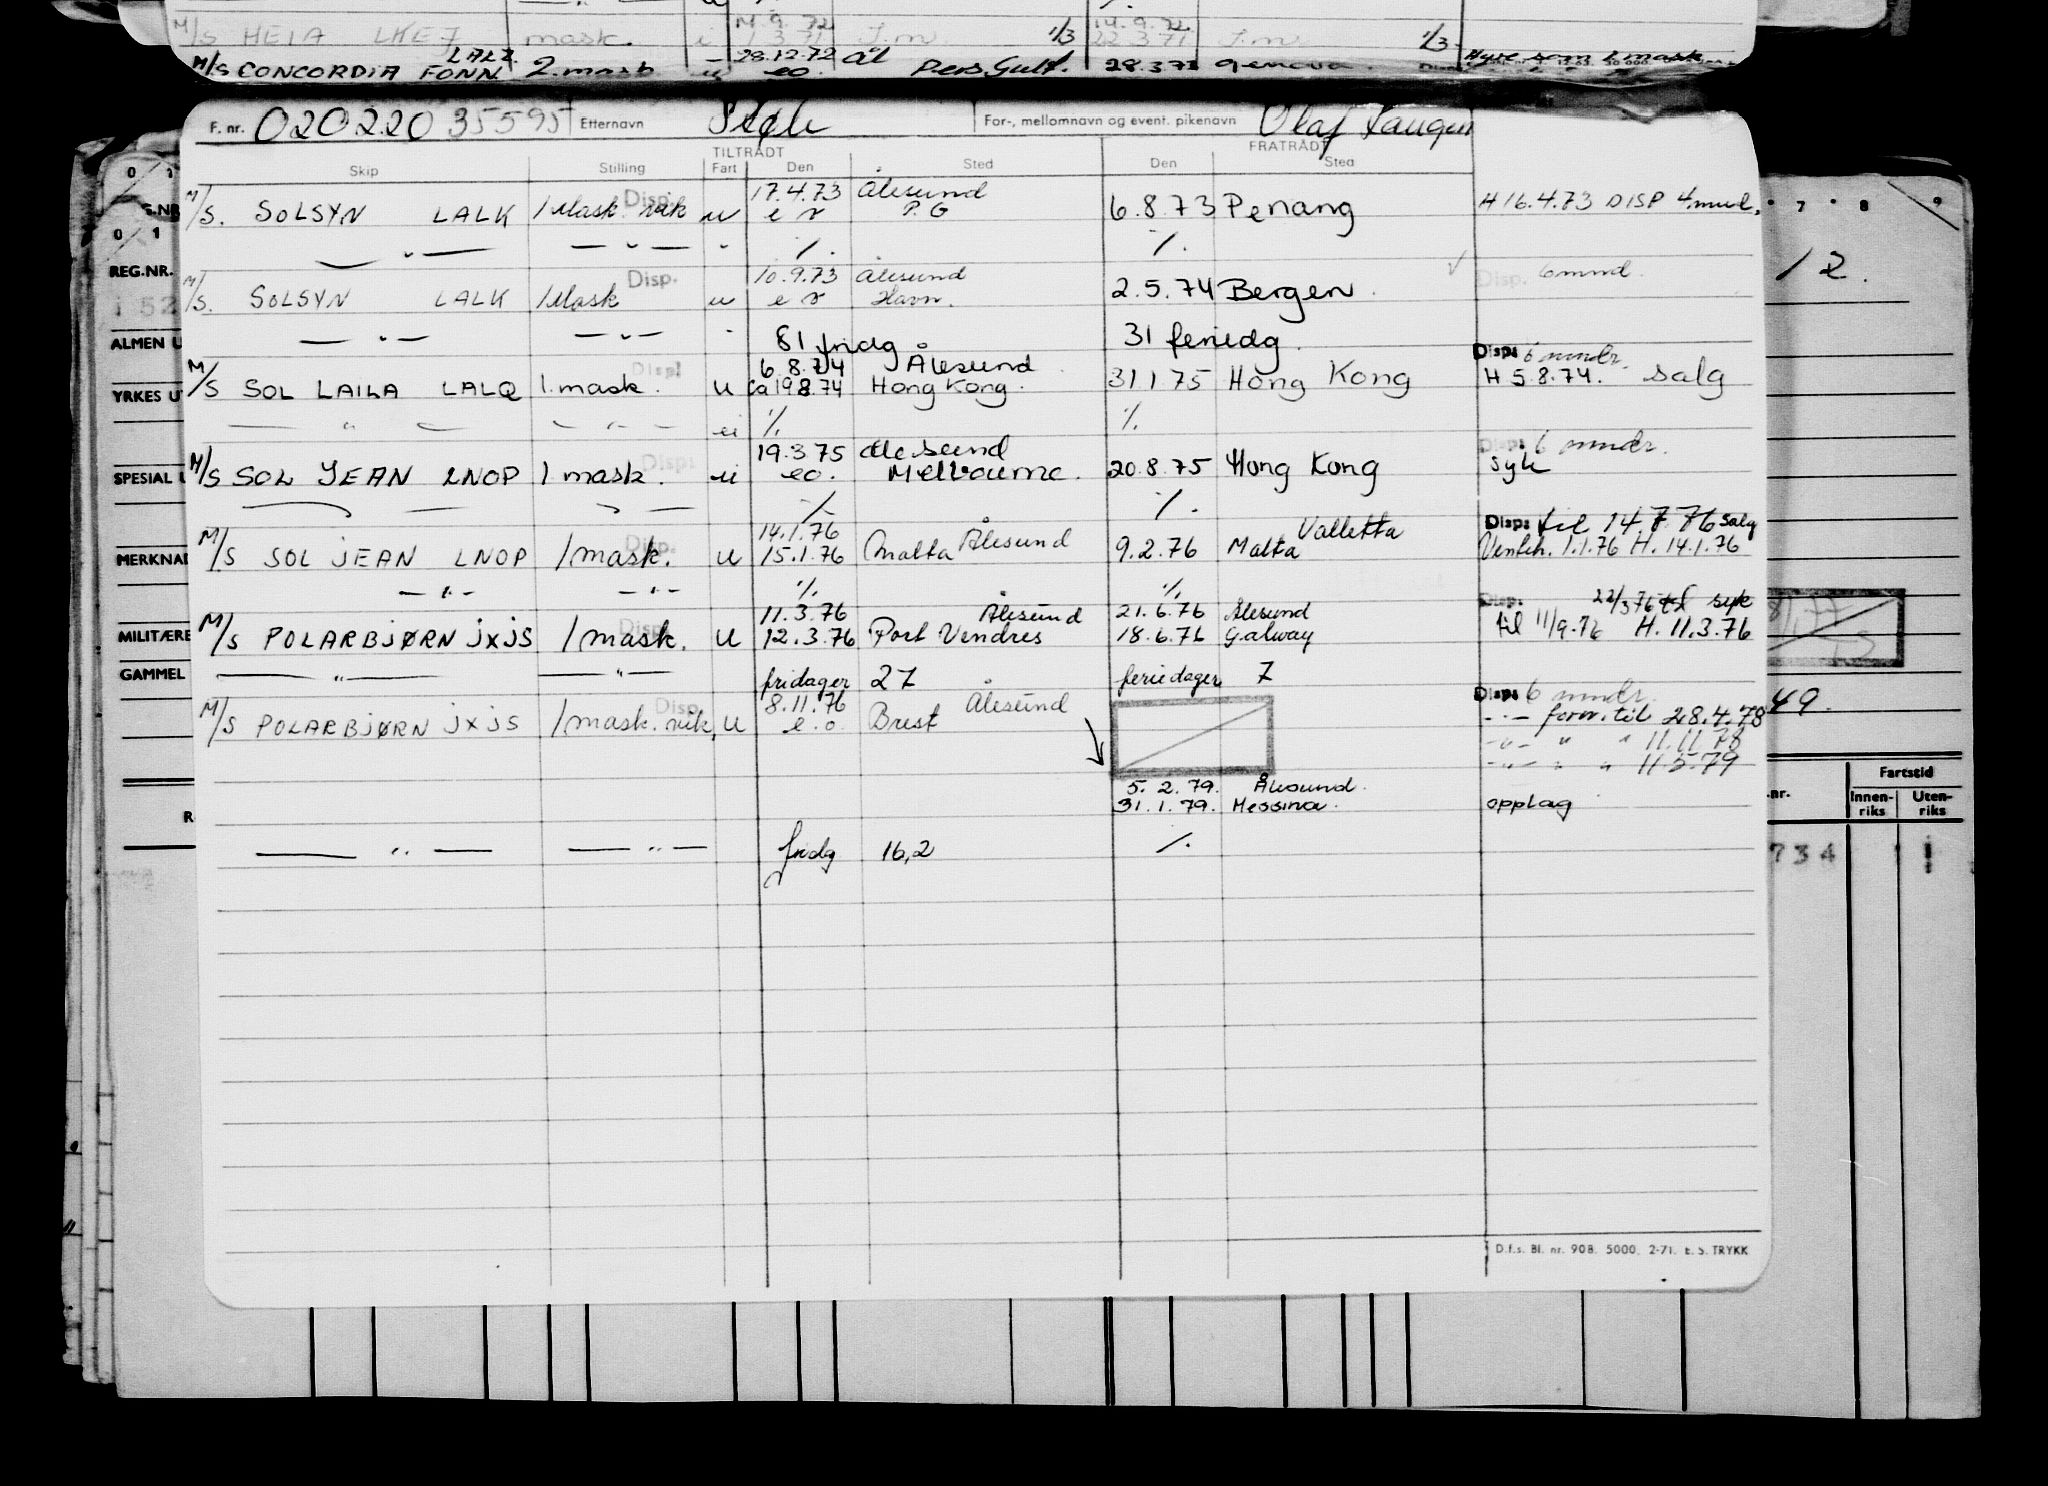 M/S HEIA LKEJ mask. i 1.3.71 I.m 1/3 22.3.71 I.m 1/3
14.9.72 14.9.72
LALZ 28.12.72 ål
M/S CONCORDIA FONN 2.mask u eo. Pers.Gulf. 28.3.73 Genova. Hyre som 1 mask
F. nr. 020220 35595 Etternavn For-, mellomnavn og event. pikenavn Olaf Laugen
TILTRÅDT FRATRÅDT
Skip Stilling Fart Den Sted Den Sted
Disp. 17.4.73 Ålesund
M/S. SOLSYN LALK 1 Mask vik u e r P.G 6.8.73 Penang H 16.4.73 DISP 4.mnd.
— " — — " — " %. %.
Disp. 10.9.73 Ålesund Disp. 6 mnd.
M/S. SOLSYN LALK 1 Mask u e r Havn. 2.5.74 Bergen
— " — — " — " 81 fridg 31 feriedg.
Disp. 6.8.74 Ålesund Disp: 6 mndr.
M/S SOL LAILA LALQ 1. mask. u ca 19.8.74 Hong Kong. 31.1.75 Hong Kong H 5.8.74. Salg
— " — — " — u %. %.
Disp: 19.3.75 Ålesund Disp: 6 mndr.
M/S SOL JEAN LNOP 1 mask. u eo. Melbourne. 20.8.75 Hong Kong syk
%. %.
Disp. 14.1.76 Ålesund Valletta Disp: til 14.7.76 Salg
M/S SOL JEAN LNOP 1 mask. u 15.1.76 Malta 9.2.76 Malta Venteh. 1.1.76 H. 14.1.76
— " — — " — %. %.
Disp. 11.3.76 Ålesund 21.6.76 Ålesund Disp. 22/3 76 syk
M/S POLARBJØRN JXJS 1 mask. u 12.3.76 Port Vendres 18.6.76 Galway til 11/9.76 H. 11.3.76
— " — — " — fridager 27 feriedager 7
Disp. 8.11.76 Ålesund Disp: 6 mndr.
M/S POLARBJØRN JXJS 1 mask. vik, u e.o. Brest — " — forv. til 28.4.78
— " — " " 11.11.78
— " — " " 11.5.79
5. 2. 79. Ålesund.
31. 1. 79. Messina. opplag
— " — — " — fridg 16,2 %.
D.f.s. Bl. nr. 908. 5000. 2-71. E. S. TRYKK
REG.NR.
ALMEN U
YRKES U
SPESIAL
MERKNAD
MILITÆRE
GAMMEL
7 8 9
12.
49.
Fartstid
nr. Innen-riks Uten-riks
734 1